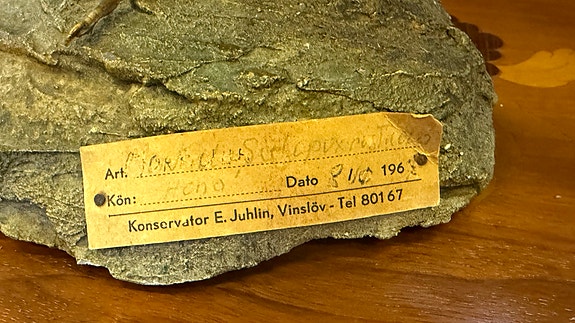 Art. Morkulla, Scolopax rusticola
Kön: Hona Dato 8/10 196
Konservator E. Juhlin, Vinslöv - Tel 801 67